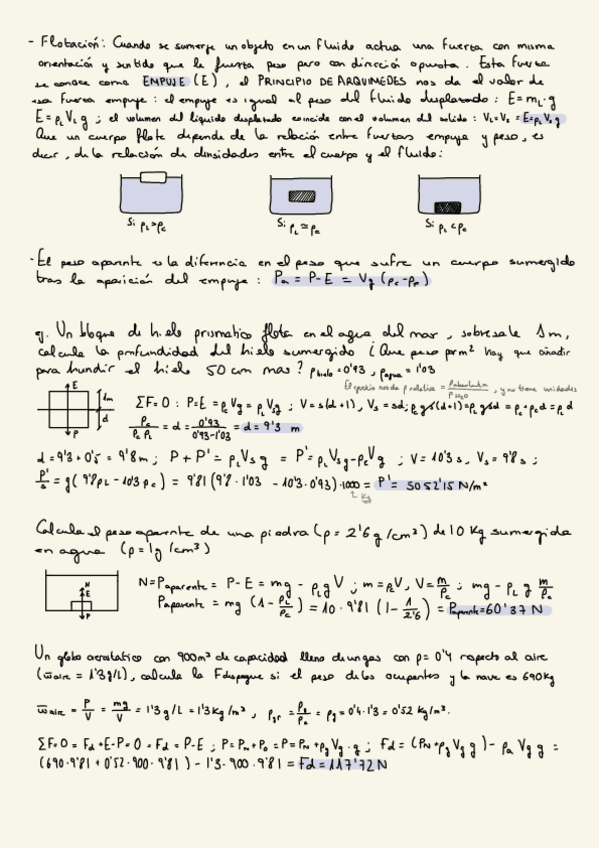 - Flotación: Cuando se sumerje un objeto en un fluido actua una fuerza con misma
orientación y sentido que la fuerza peso pero con dirección opuesta. Esta fuerza
se conoce como EMPUJE (E), el PRINCIPIO DE ARQUIMEDES nos da el valor de
esa fuerza empuje: el empuje es igual al peso del fluido desplazado: E = m_L·g
E = ρ_L V_L g ; el volumen del liquido desplazado coincide con el volumen del solido: V_L = V_s = E = ρ_L V_s g
Que un cuerpo flote depende de la relación entre fuerzas empuje y peso, es
decir, de la relación de densidades entre el cuerpo y el fluido:
Si ρ_L > ρ_c
Si ρ_L ≃ ρ_c
Si ρ_L < ρ_c
· El peso aparente es la diferencia en el peso que sufre un cuerpo sumergido
tras la aparición del empuje: Pa = P - E = Vg (ρ_c - ρ_f)
eg. Un bloque de hielo prismatico flota en el agua del mar, sobresale 1m,
calcula la profundidad del hielo sumergido ¿Que peso por m² hay que añadir
para hundir el hielo 50 cm mas? ρ hielo = 0'93, ρ agua = 1'03
El ejercicio nos da ρ relativa = ρ absoluta / ρ H2O, y no tiene unidades
E
1m
d
P
ΣF = 0 : P = E = ρ_c Vg = ρ_L V_s g ; V = s(d+1), V_s = sd; ρ_c g s(d+1) = ρ_L g s d = ρ_c + ρ_c d = ρ_L d
ρ_c / ρ_c ρ_L = d = 0'93 / 0'93 - 1'03 = d = 9'3 m
d = 9'3 + 0'5 = 9'8 m ; P + P' = ρ_L V_s g = P' = ρ_L V_s g - ρ_c V g ; V = 10'3 s, V_s = 9'8 s ;
P'/s = g (9'8 ρ_L - 10'3 ρ_c) = 9'81 (9'8 · 1'03 - 10'3 · 0'93) · 1000 = P' = 5052'15 N/m²
Kg
Calcula el peso aparente de una piedra (ρ = 2'6 g/cm³) de 10 Kg sumergida
en agua (ρ = 1g/cm³)
N
E
P
N = P aparente = P - E = mg - ρ_L g V ; m = ρ_c V, V = m/ρ_c ; mg - ρ_L g m/ρ_c
P aparente = mg (1 - ρ_L/ρ_c) = 10 · 9'81 (1 - 1/2'6) = P aparente = 60'37 N
Un globo aerostatico con 900m³ de capacidad lleno de un gas con ρ = 0'4 respecto al aire
(ϖ aire = 1'3 g/L), calcula la F despegue si el peso de los ocupantes y la nave es 690 kg
ϖ aire = P/V = mg/V = 1'3 g/L = 1'3 Kg/m³, ρ_gr = ρ_g/ρ_a = ρ_g = 0'4 · 1'3 = 0'52 Kg/m³.
ΣF = 0 = Fd + E - P = 0 = Fd = P - E ; P = P_N + P_G = P = P_N + ρ_g V_g · g ; Fd = (P_N + ρ_g V_g g) - ρ_a V_g g =
(690 · 9'81 + 0'52 · 900 · 9'81) - 1'3 · 900 · 9'81 = Fd = -117'72 N